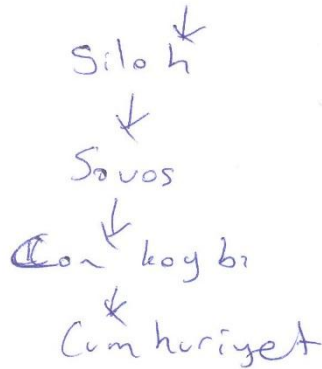 Silah
Savas
Can kaybı
Cumhuriyet